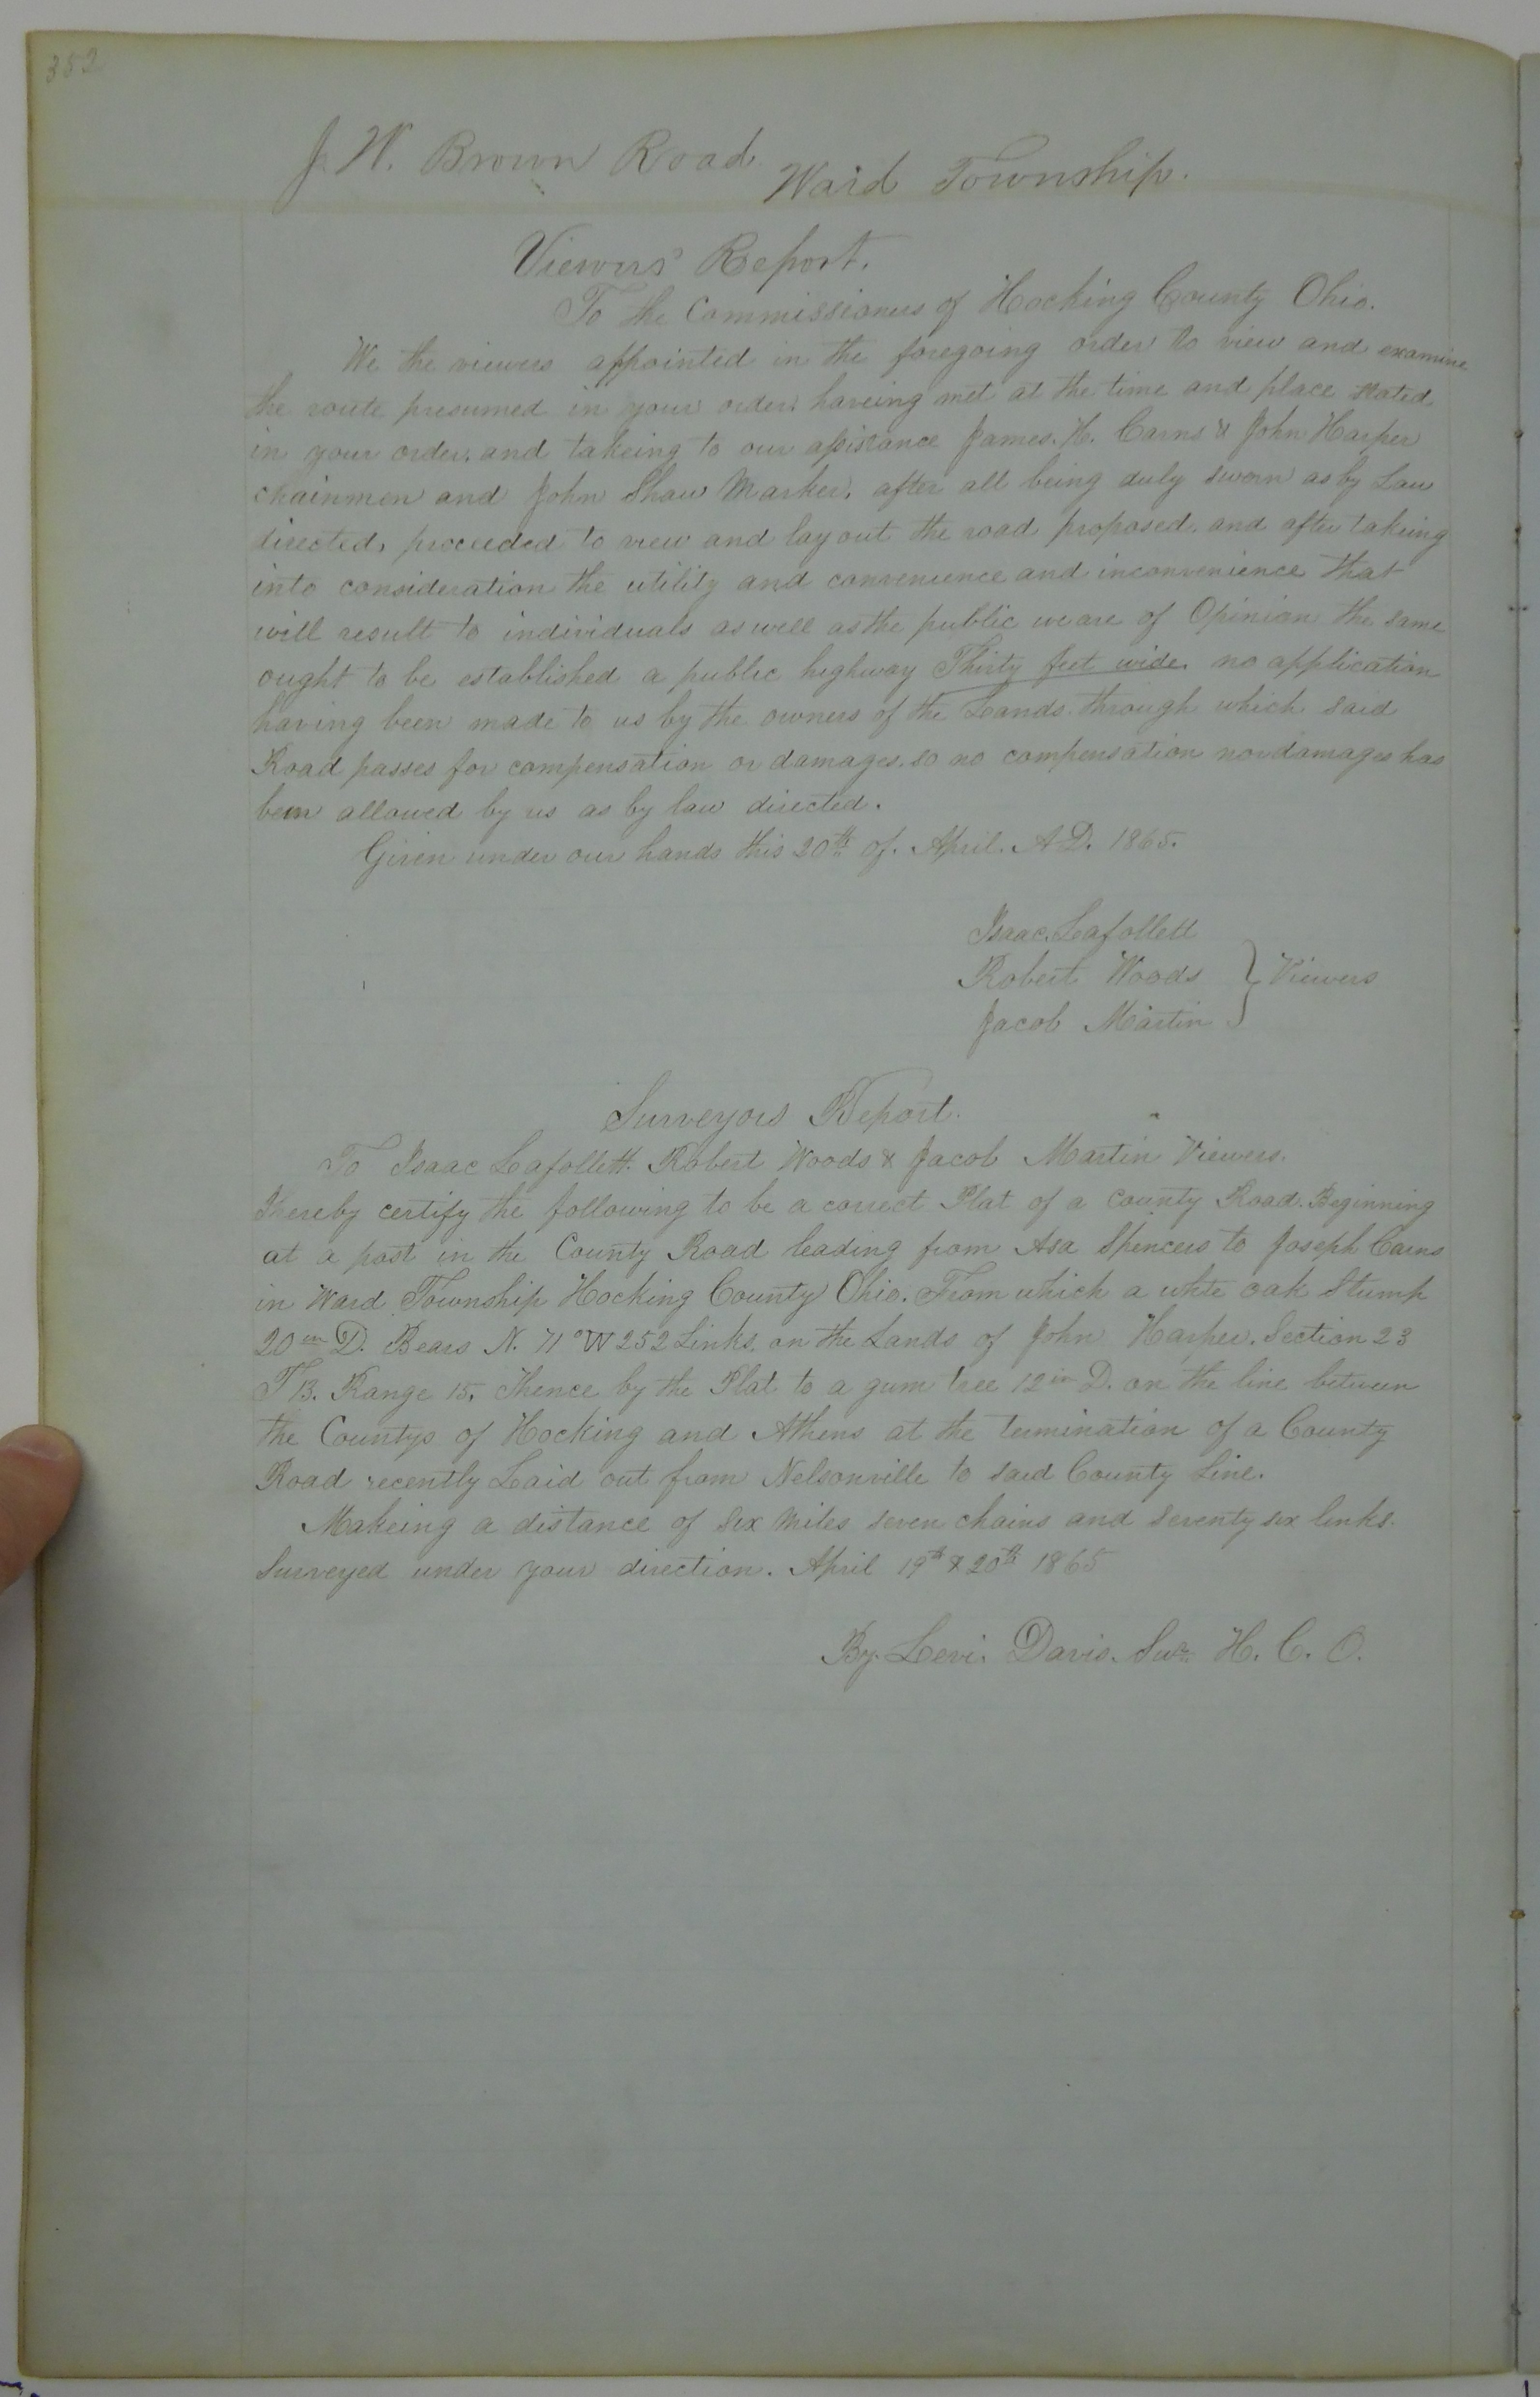 352
J. W. Brown Road. Ward Township.
Viewers' Report.
To the Commissioners of Hocking County Ohio.
We the viewers appointed in the foregoing order to view and examine
the route presumed in your order. haveing met at the time and place stated
in your order, and takeing to our assistance James. H. Carns & John Harper
chainmen and John Shaw Marker, after all being duly sworn as by Law
directed, proceeded to view and lay out the road proposed. and after takeing
into consideration the utility and convenience and inconvenience that
will result to individuals as well as the public we are of Opinion the same
ought to be established a public highway Thirty feet wide. no application
having been made to us by the owners of the Lands through which said
Road passes for compensation or damages. so no compensation nor damages has
been allowed by us as by law directed.
Given under our hands this 20th of. April. A.D. 1865.
Isaac. Lafollett
Robert Woods } Viewers
Jacob Martin
Surveyors Report.
To Isaac Lafollett. Robert Woods & Jacob Martin Viewers.
I hereby certify the following to be a correct Plat of a County Road. Beginning
at a post in the County Road leading from Asa Spencers to Joseph Carns
in Ward Township Hocking County Ohio. From which a white oak Stump
20 in D. Bears N. 71° W 252 Links. on the Lands of John Harper. Section 23
T 13. Range 15, thence by the Plat to a gum tree 12 in D. on the line between
the Countys of Hocking and Athens at the termination of a County
Road recently Laid out from Nelsonville to said County Line.
Makeing a distance of six miles seven chains and seventy six links.
Surveyed under your direction. April 19th & 20th 1865
By. Levi. Davis. Sur. H. C. O.